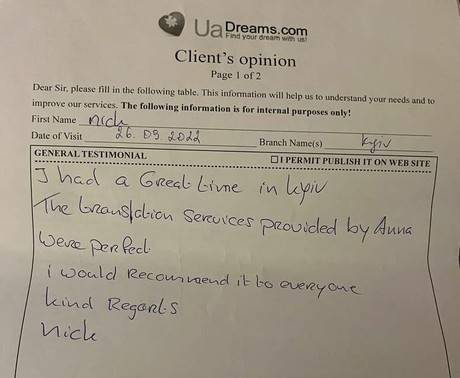 UaDreams.com
Find your dream with us!
Client's opinion
Page 1 of 2
Dear Sir, please fill in the following table. This information will help us to understand your needs and to
improve our services. The following information is for internal purposes only!
First Name nick
Date of Visit 26.09.2022 Branch Name(s) kyiv
GENERAL TESTIMONIAL ☐ I PERMIT PUBLISH IT ON WEB SITE
I had a Great time in kyiv
The translation Services provided by Anna
Were perfect.
i would Recommend it to everyone
kind Regarts
nick